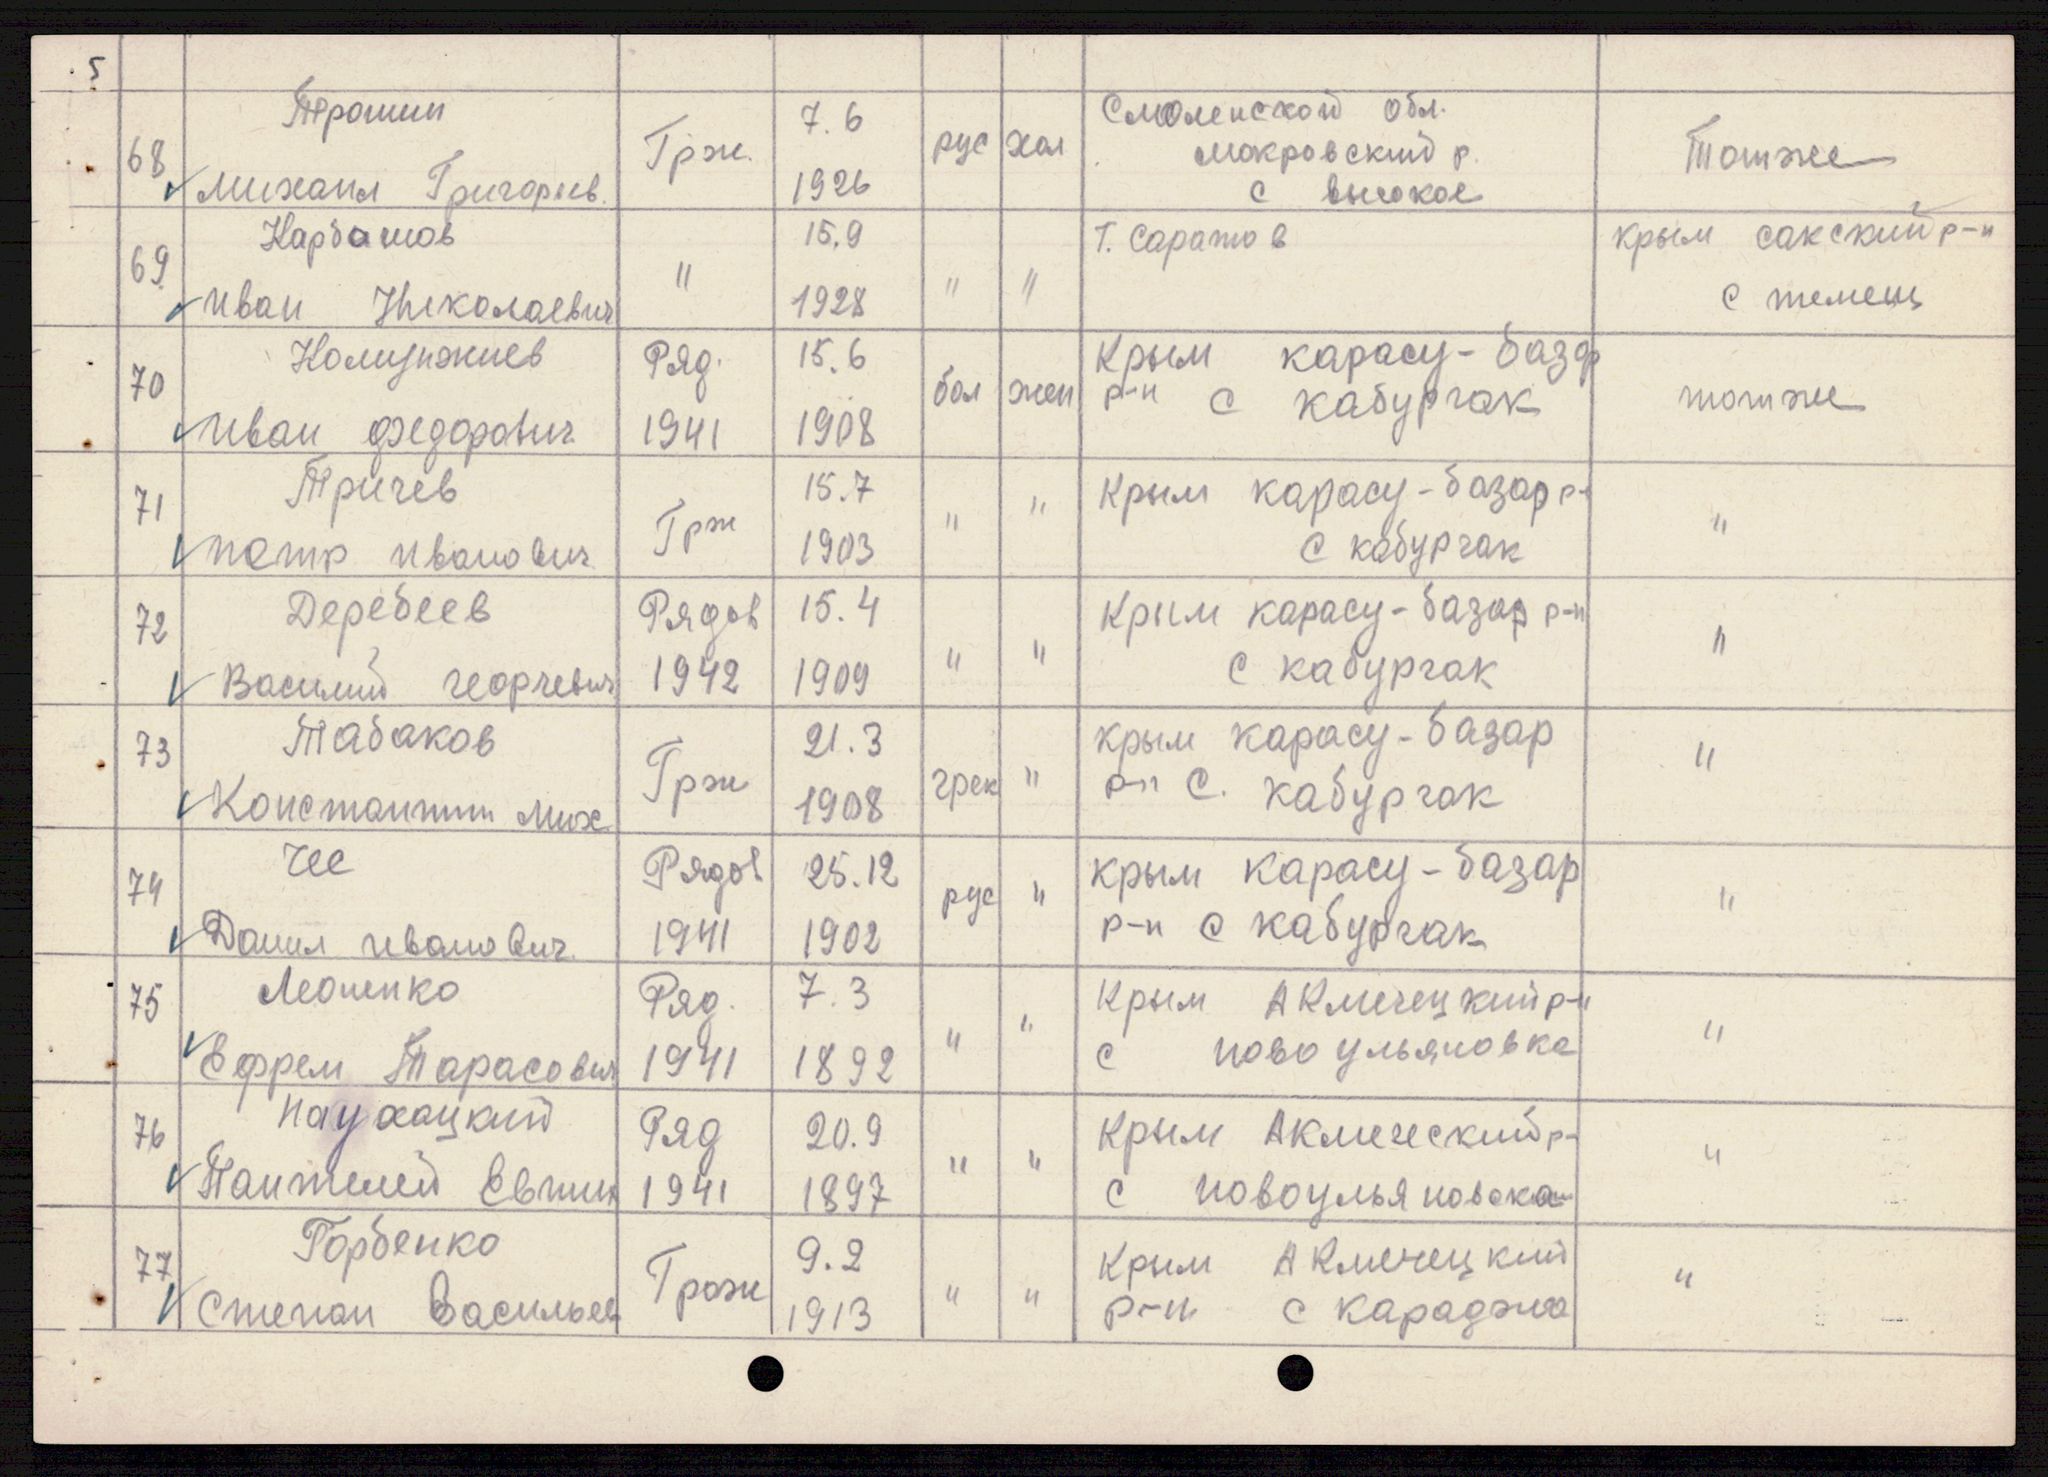 5
68 Трошин Грж. 7.6 рус хол Смоленской обл. Тотже
Михаил Григорьев. 1926 мокровский р.
с высокое
69 Карбатов " 15.9 " " Г. Саратов крым сакский р-н
Иван Николаевич 1928 с темеш
70 Колиунжиев Ряд. 15.6 бол жен Крым карасу-базар тотже
Иван Федорович 1941 1908 р-н с кабурчак
71 Тричев Грж 15.7 " " Крым карасу-базар р- "
петр иванович 1903 с кабурчак
72 Деребеев Рядов 15.4 " " Крым карасу-базар р-н "
Василий георгевич 1942 1909 с кабурчак
73 Табаков Грж 21.3 грек " крым карасу-базар "
Константин мих 1908 р-н с. кабурчак
74 Чее Рядов 25.12 рус " крым карасу-базар "
Данил иванович. 1941 1902 р-н с кабурчак
75 Леоненко Ряд. 7.3 " " Крым Акмечецкий р-н "
Ефрем Тарасович 1941 1892 с новоульяновка
76 Наухацкий Ряд 20.9 " " Крым Акмеческий р- "
Пантелей Евтих 1941 1897 с новоульяновка
77 Горбенко Грож 9.2 " " Крым Акмечецкий "
Степан Васильев 1913 р-н с Караджа